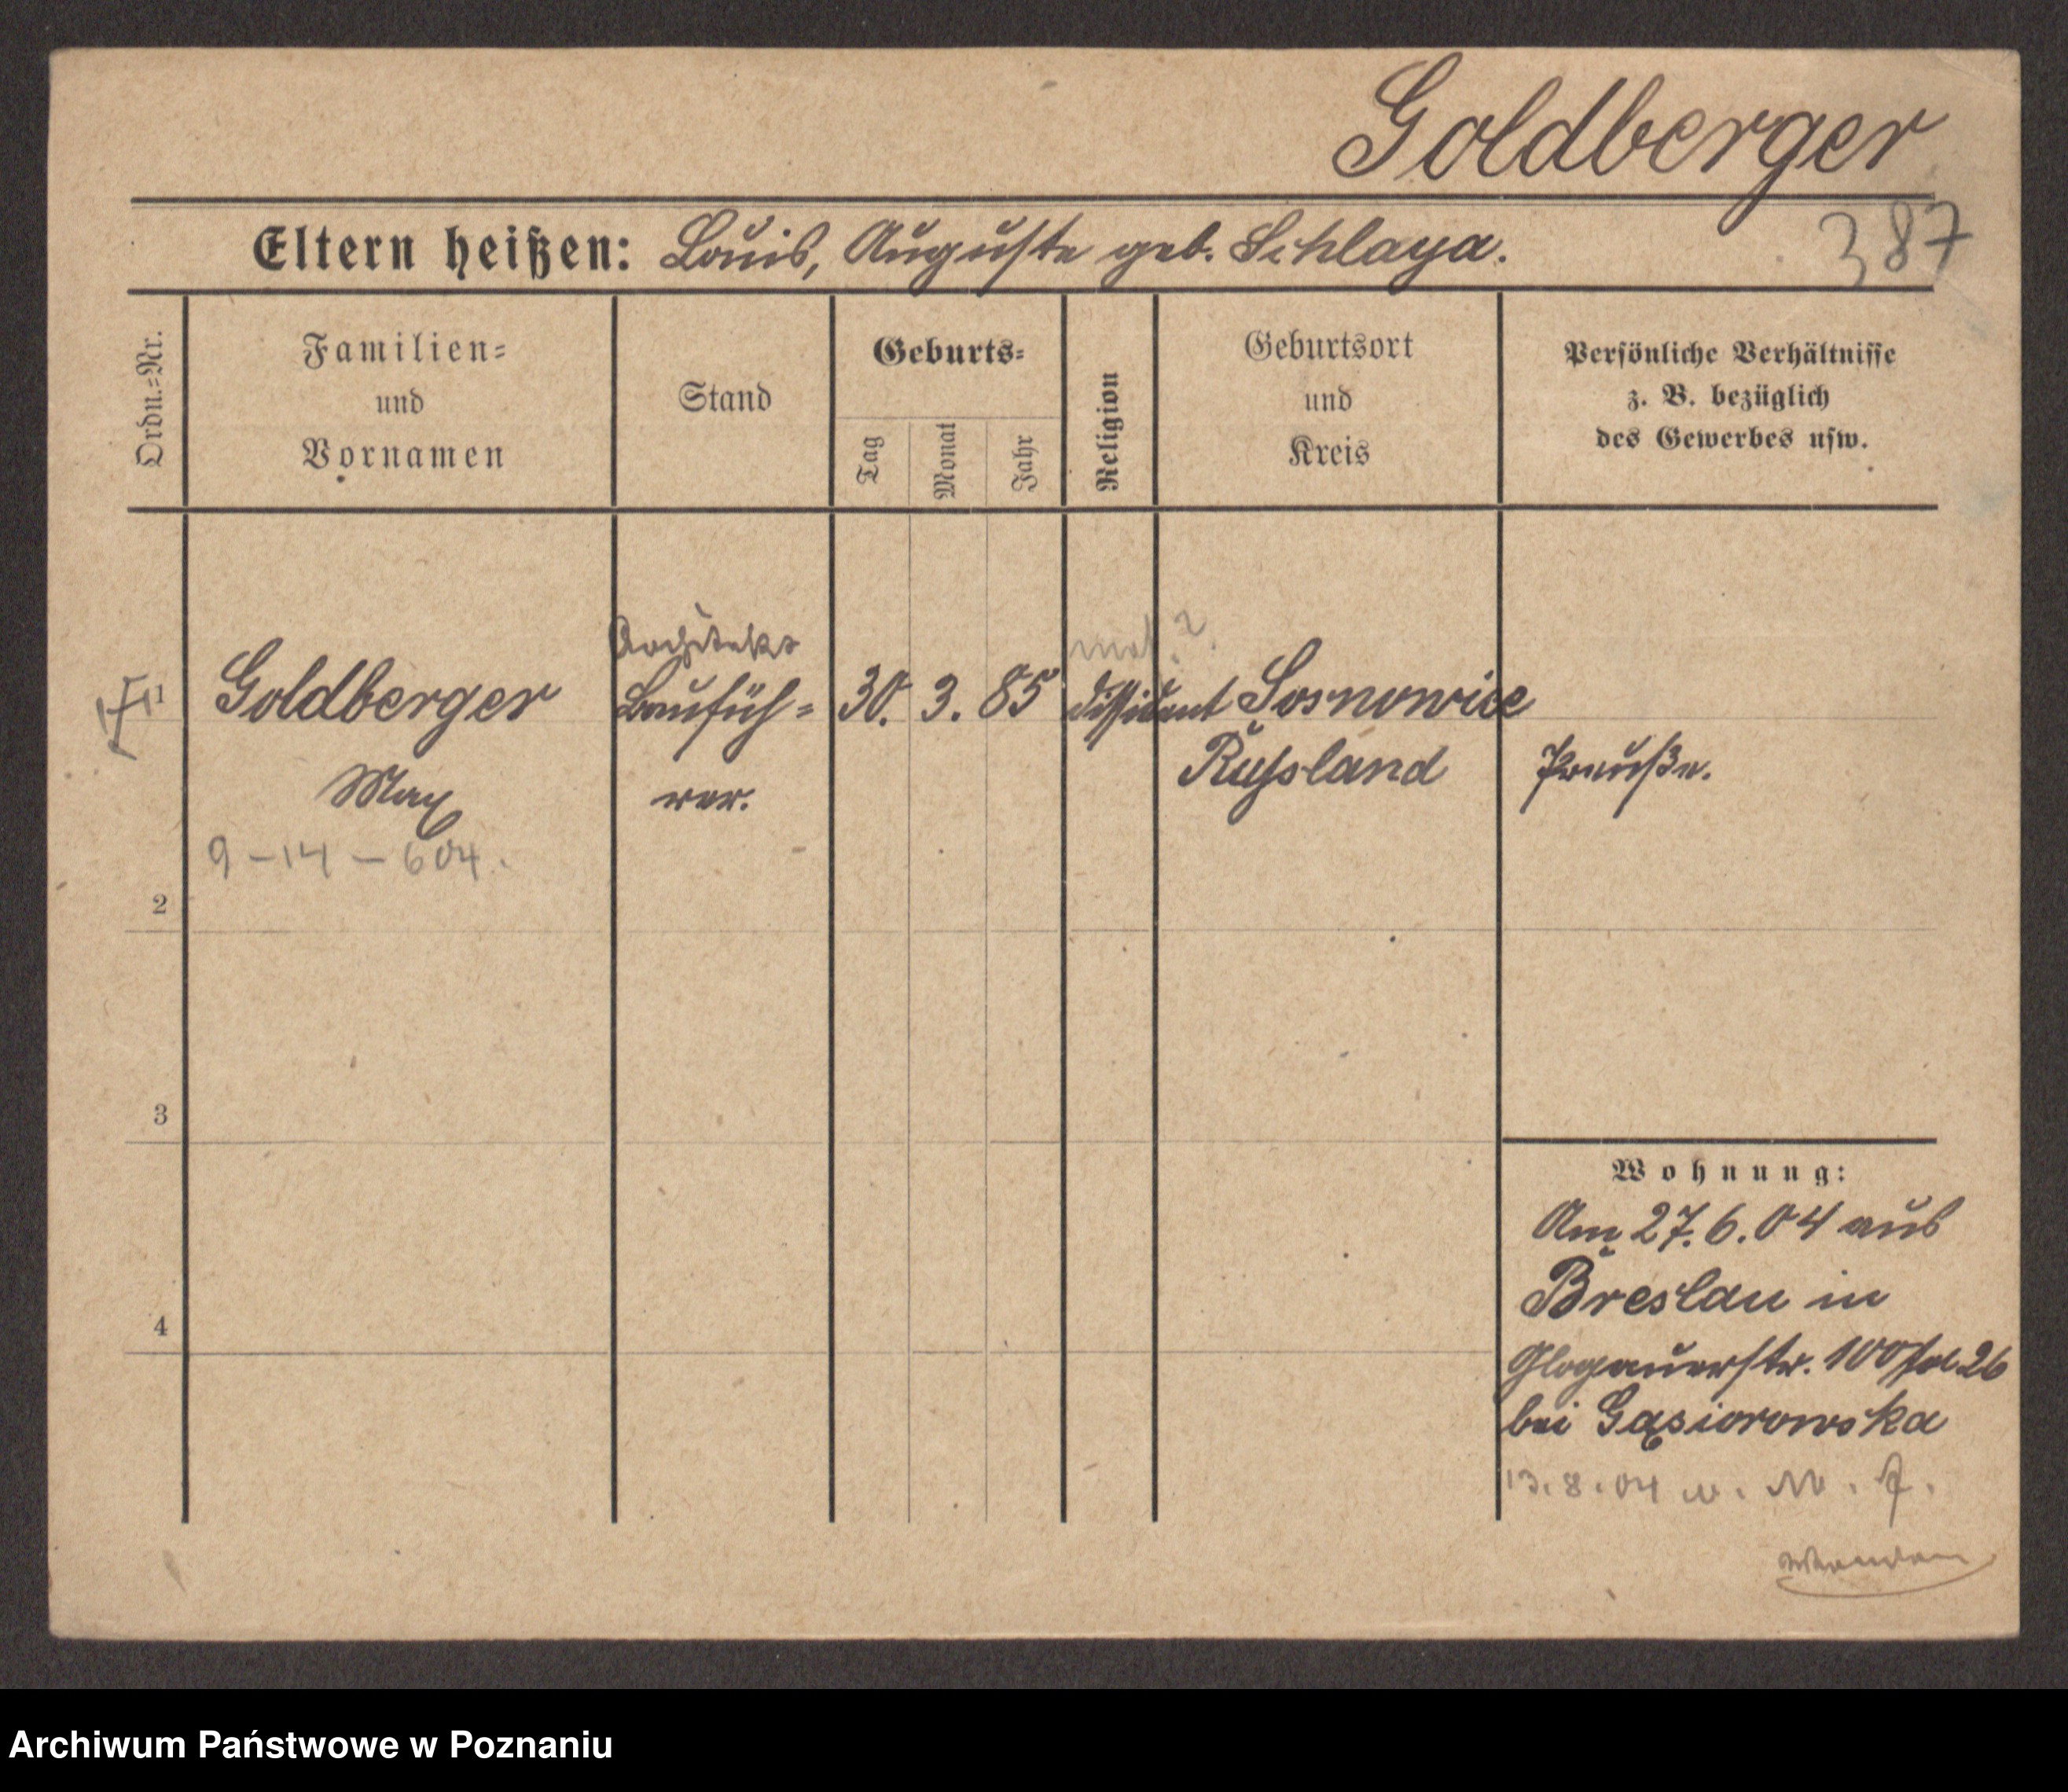 Goldberger
Eltern heißen: Louis, Auguste geb. Schlaya.
387
Ordn.=Nr.
Familien=
und
Vornamen
Stand
Geburts=
Tag
Monat
Jahr
Religion
Geburtsort
und
Kreis
Persönliche Verhältnisse
z. B. bezüglich
des Gewerbes usw.
Architekt
1 Goldberger Baufüh= 30. 3. 85 dissident Sosnowice
Max rer. Russland Preuße.
9-14-604.
2
3
4
Wohnung:
Am 27.6.04 aus
Breslau in
Glogauerstr. 100
bei Gąsiorowska
13.8.04
Archiwum Państwowe w Poznaniu